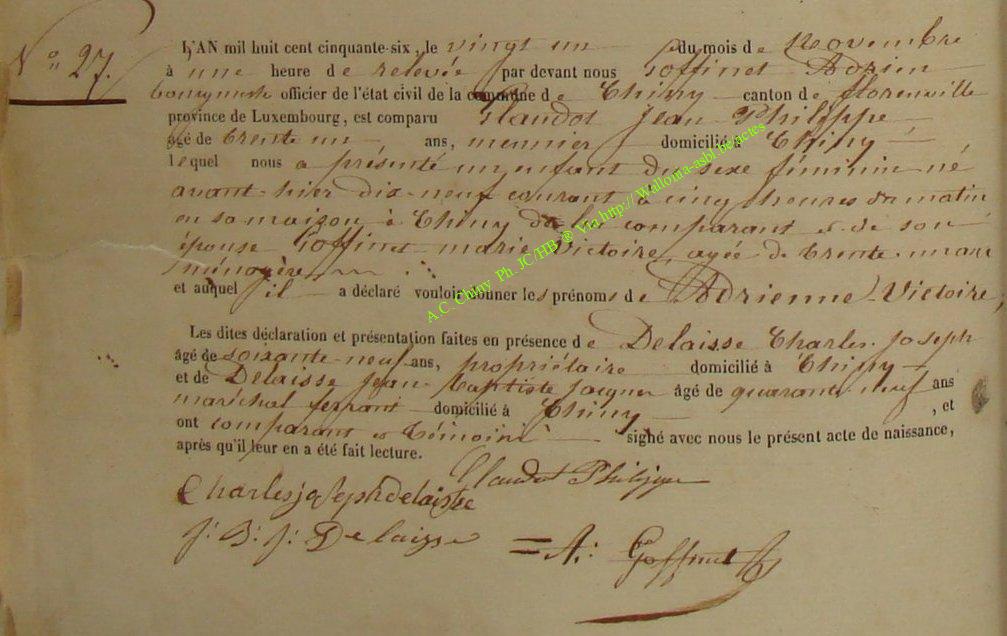 N° 27.
L'AN mil huit cent cinquante-six, le vingt un du mois de Novembre
à une heure de relevée par devant nous Goffinet Adrien
bourgmestre officier de l'état civil de la commune de Chiny canton de florenville
province de Luxembourg, est comparu Glaudot Jean Philippe
âgé de trente un ans, meunier domicilié à Chiny
lequel nous a présenté un enfant du sexe féminin né
avant-hier dix-neuf courant à cinq heures du matin
en sa maison à Chiny de lui comparant et de son
épouse Goffinet marie Victoire, agée de trente un ans
ménagère
et auquel il a déclaré vouloir donner les prénoms de Adrienne-Victoire,
Les dites déclaration et présentation faites en présence de Delaisse Charles-joseph
âgé de soixante-neuf ans, propriétaire domicilié à Chiny
et de Delaisse Jean-Baptiste Jacques âgé de quarante neuf ans
maréchal ferrant domicilié à Chiny , et
ont comparant et témoins signé avec nous le présent acte de naissance,
après qu'il leur en a été fait lecture.
Glaudot Philippe
Charles joseph delaisse
j: B: j: Delaisse = A: Goffinet
A.C. Chiny Ph. JC/HB ® Via http://Wallonia-asbl.be/actes